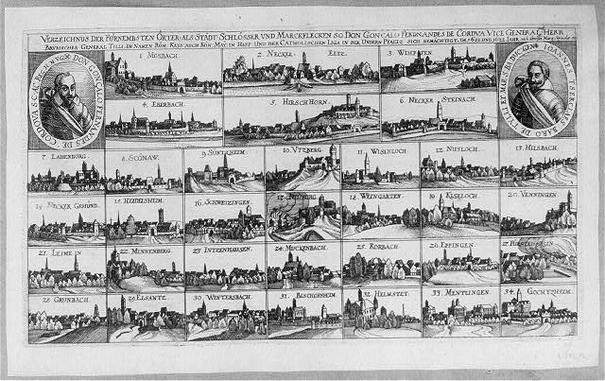 VERZEICHNUS DER FÜRNEMBSTEN ÖRTER ALS STÄDT SCHLÖSSER UND MARCKFLECKEN SO DON GONCALO FERDINANDES DE CORDUA VICE GENERAL HERR
BAYRISCHER GENERAL TILLI IM NAMEN RÖM: KAYS: AUCH RÖN: MAY: IN HISP: UND DER CATHOLISCHEN LIGA IN DER UNDERN PFALTZ SICH BEMÄCHTIGT IM 1621 UND 1622 IAHR
DON GONCALO FERNANDES DE CORDOVA
IOANNES TSERCLAES BARO DE TILLI
1. MOSBACH
2. NECKER-ELTZ.
3. WIMPFFEN
4. EBERBACH.
5. HIRSCHHORN.
6. NECKER STEINACH
7. LADENBURG.
8. SCÖNAW.
9. SUNTZHEIM.
10. UTZBERG
11. WISENLOCH
12. NUSLOCH.
13. HILSBACH.
14. NECKER GEMÜND.
15. HEIDELSHEIM.
16. SCHWETZINGEN.
17. NEUBURG
18. WEINGARTEN.
19. KISSLOCH.
20. VENNINGEN
21. LEIMEIN
22. MINNENBURG
23. INTZENHAUSEN.
24. MUCKENBACH.
25. RORBACH
26. EPPINGEN
28. GRUNBACH.
29. ELSANTZ
30. WINTERSBACH
31. BISCHOFSHEIM
32. HELMSTET
33. MENTZINGEN
34. GOCHTZHEIM